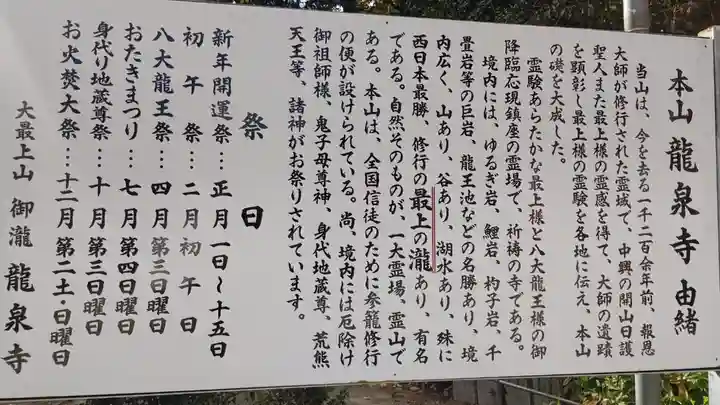 本山 龍泉寺 由緒
当山は、今を去る一千二百余年前、報恩
大師が修行された霊域で、中興の開山日護
聖人また最上様の霊感を得て、大師の遺蹟
を顕彰し最上様の霊験を各地に伝え、本山
の礎を大成した。
霊験あらたかな最上様と八大龍王様の御
降臨応現鎮座の霊場で、祈祷の寺である。
境内には、ゆるぎ岩、鯉岩、杓子岩、千
畳岩等の巨岩、龍王池などの名勝あり、境
内広く、山あり、谷あり、湖水あり、殊に
西日本最勝、修行の最上の瀧あり、有名
である。自然そのものが、一大霊場、霊山で
ある。本山は、全国信徒のために参籠修行
の便が設けられている。尚、境内には厄除け
御祖師様、鬼子母尊神、身代地蔵尊、荒熊
天王等、諸神がお祭りされています。
祭日
新年開運祭…正月一日~十五日
初午祭…二月初午日
八大龍王祭…四月第三日曜日
おたきまつり…七月第四日曜日
身代り地蔵尊祭…十月第三日曜日
お火焚大祭…十二月第二土・日曜日
大最上山 御瀧 龍泉寺